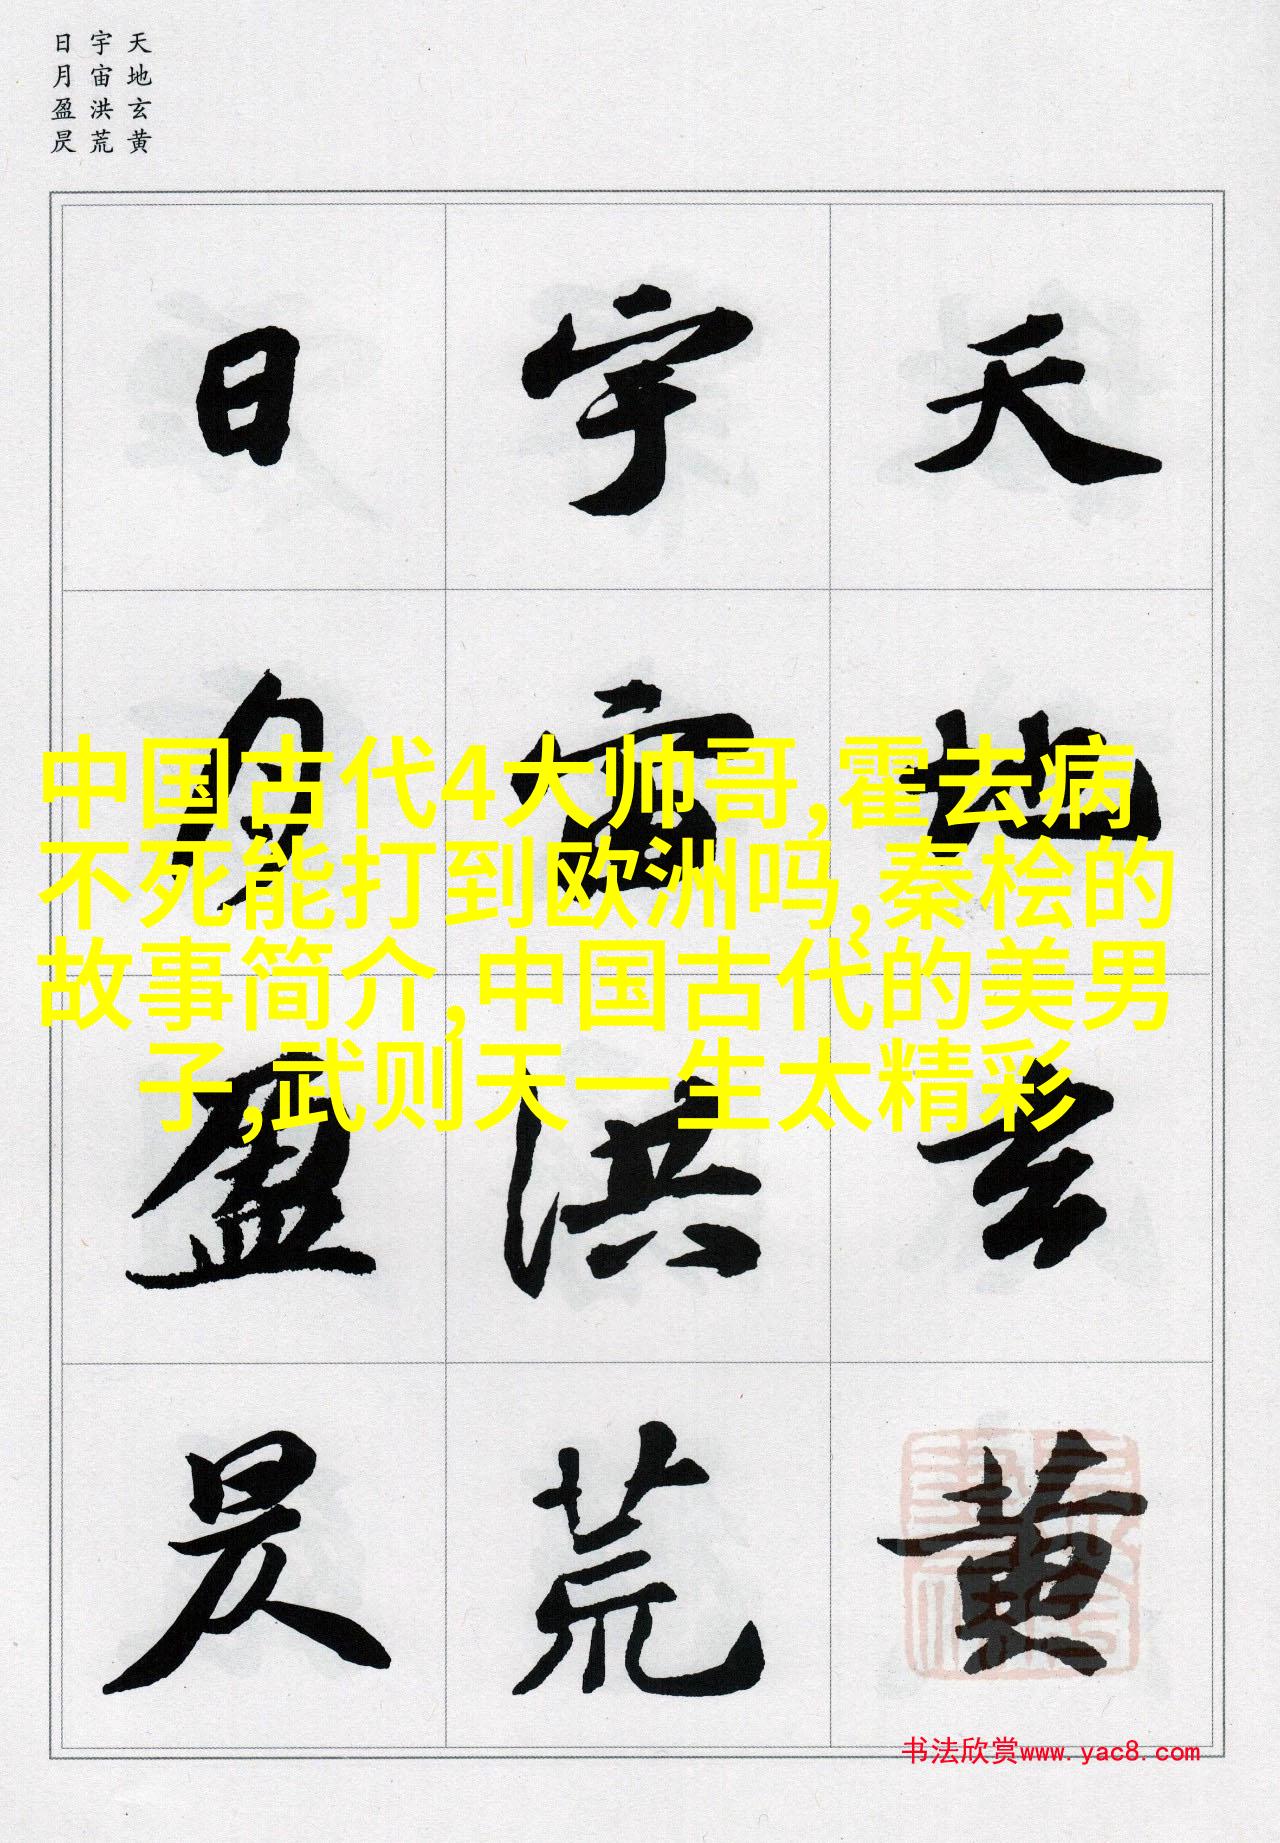 天地玄黄
宇宙洪荒
日月盈昃
天地玄黄
宇宙洪荒
日月盈昃
中国古代4大帅哥,霍去病
不死能打到欧洲吗,秦桧的
故事简介,中国古代的美男
子,武则天一生太精彩
书法欣赏www.yac8.com